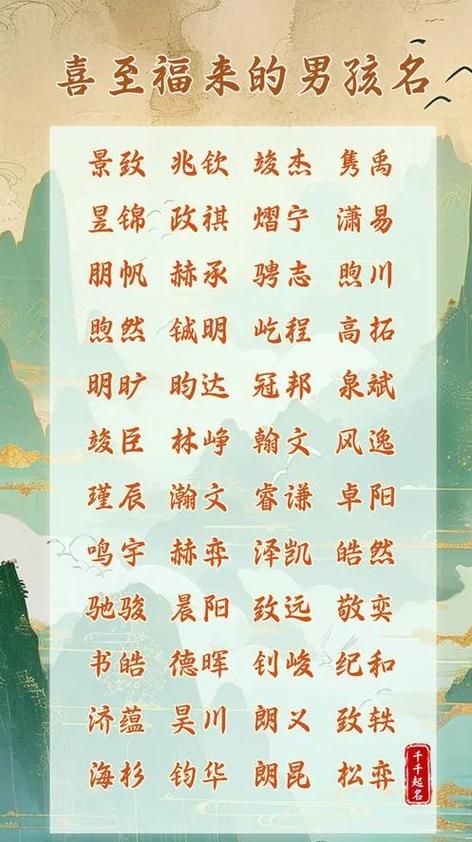 喜至福来的男孩名
景致 兆钦 竣杰 隽禹
昱锦 政祺 熠宁 潇易
朋帆 赫承 骋志 煦川
煦然 铖明 屹程 高拓
明旷 昀达 冠邦 泉斌
竣臣 林峥 翰文 风逸
瑾辰 瀚文 睿谦 卓阳
鸣宇 赫弈 泽凯 皓然
驰骏 晨阳 致远 敬奕
书皓 德晖 钊峻 纪和
济蕴 昊川 朗义 致轶
海杉 钧华 朗昆 松弈
千千起名